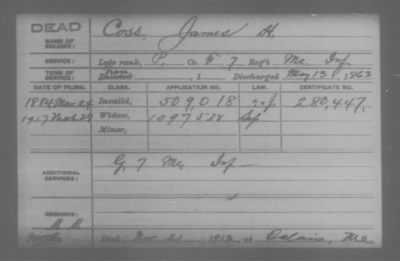 DEAD
NAME OF SOLDIER: Coss, James H.
SERVICE: Late rank, P, Co. F, 7 Reg't Me. Inf
TERM OF SERVICE: Enlisted , 1 Discharged May 13, 1863
DATE OF FILING. CLASS. APPLICATION NO. LAW. CERTIFICATE NO.
1884 Mar 24 Invalid, 509,018 280,447
1917 Widow, 1097528
Minor,
ADDITIONAL SERVICES: G, 7 Me Inf
REMARKS:
Died Nov 21, 1912, at Me